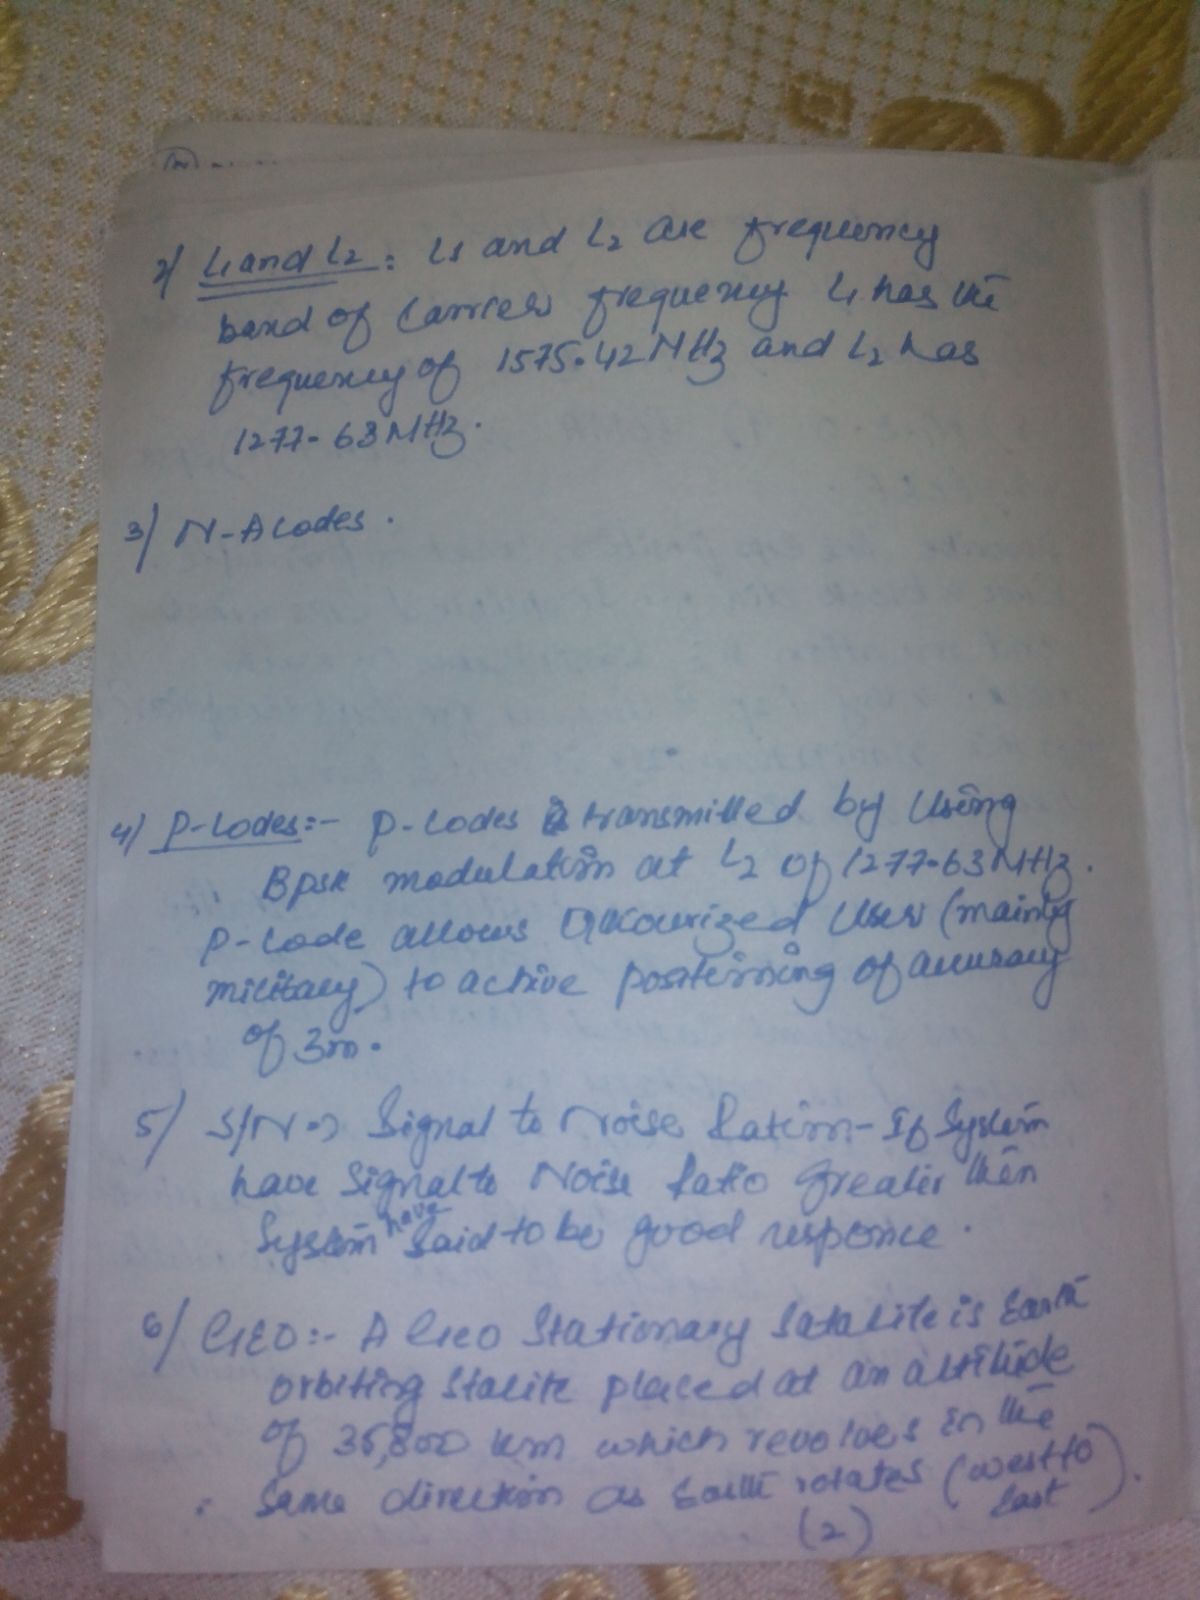 2) L1 and L2 : L1 and L2 are frequency
band of carrier frequency L1 has the
frequency of 1575.42 MHz and L2 has
1277.63 MHz.
3) N-A Codes .
4) P-Codes :- P-codes is transmitted by using
Bpsk modulation at L2 of 1277.63 MHz.
P-code allows User (mainly
military) to active of accuracy
of 3m.
5) S/N => Signal to Noise Ration - If System
have Signal to Noise Ratio Greater then
System have Said to be good responce .
6) GEO :- A Geo Stationary Satalite is Earth
orbiting Stalite placed at an altitude
of 35,800 km which revolves in the
Same direction as Earth rotates (west to
East ).
(2)